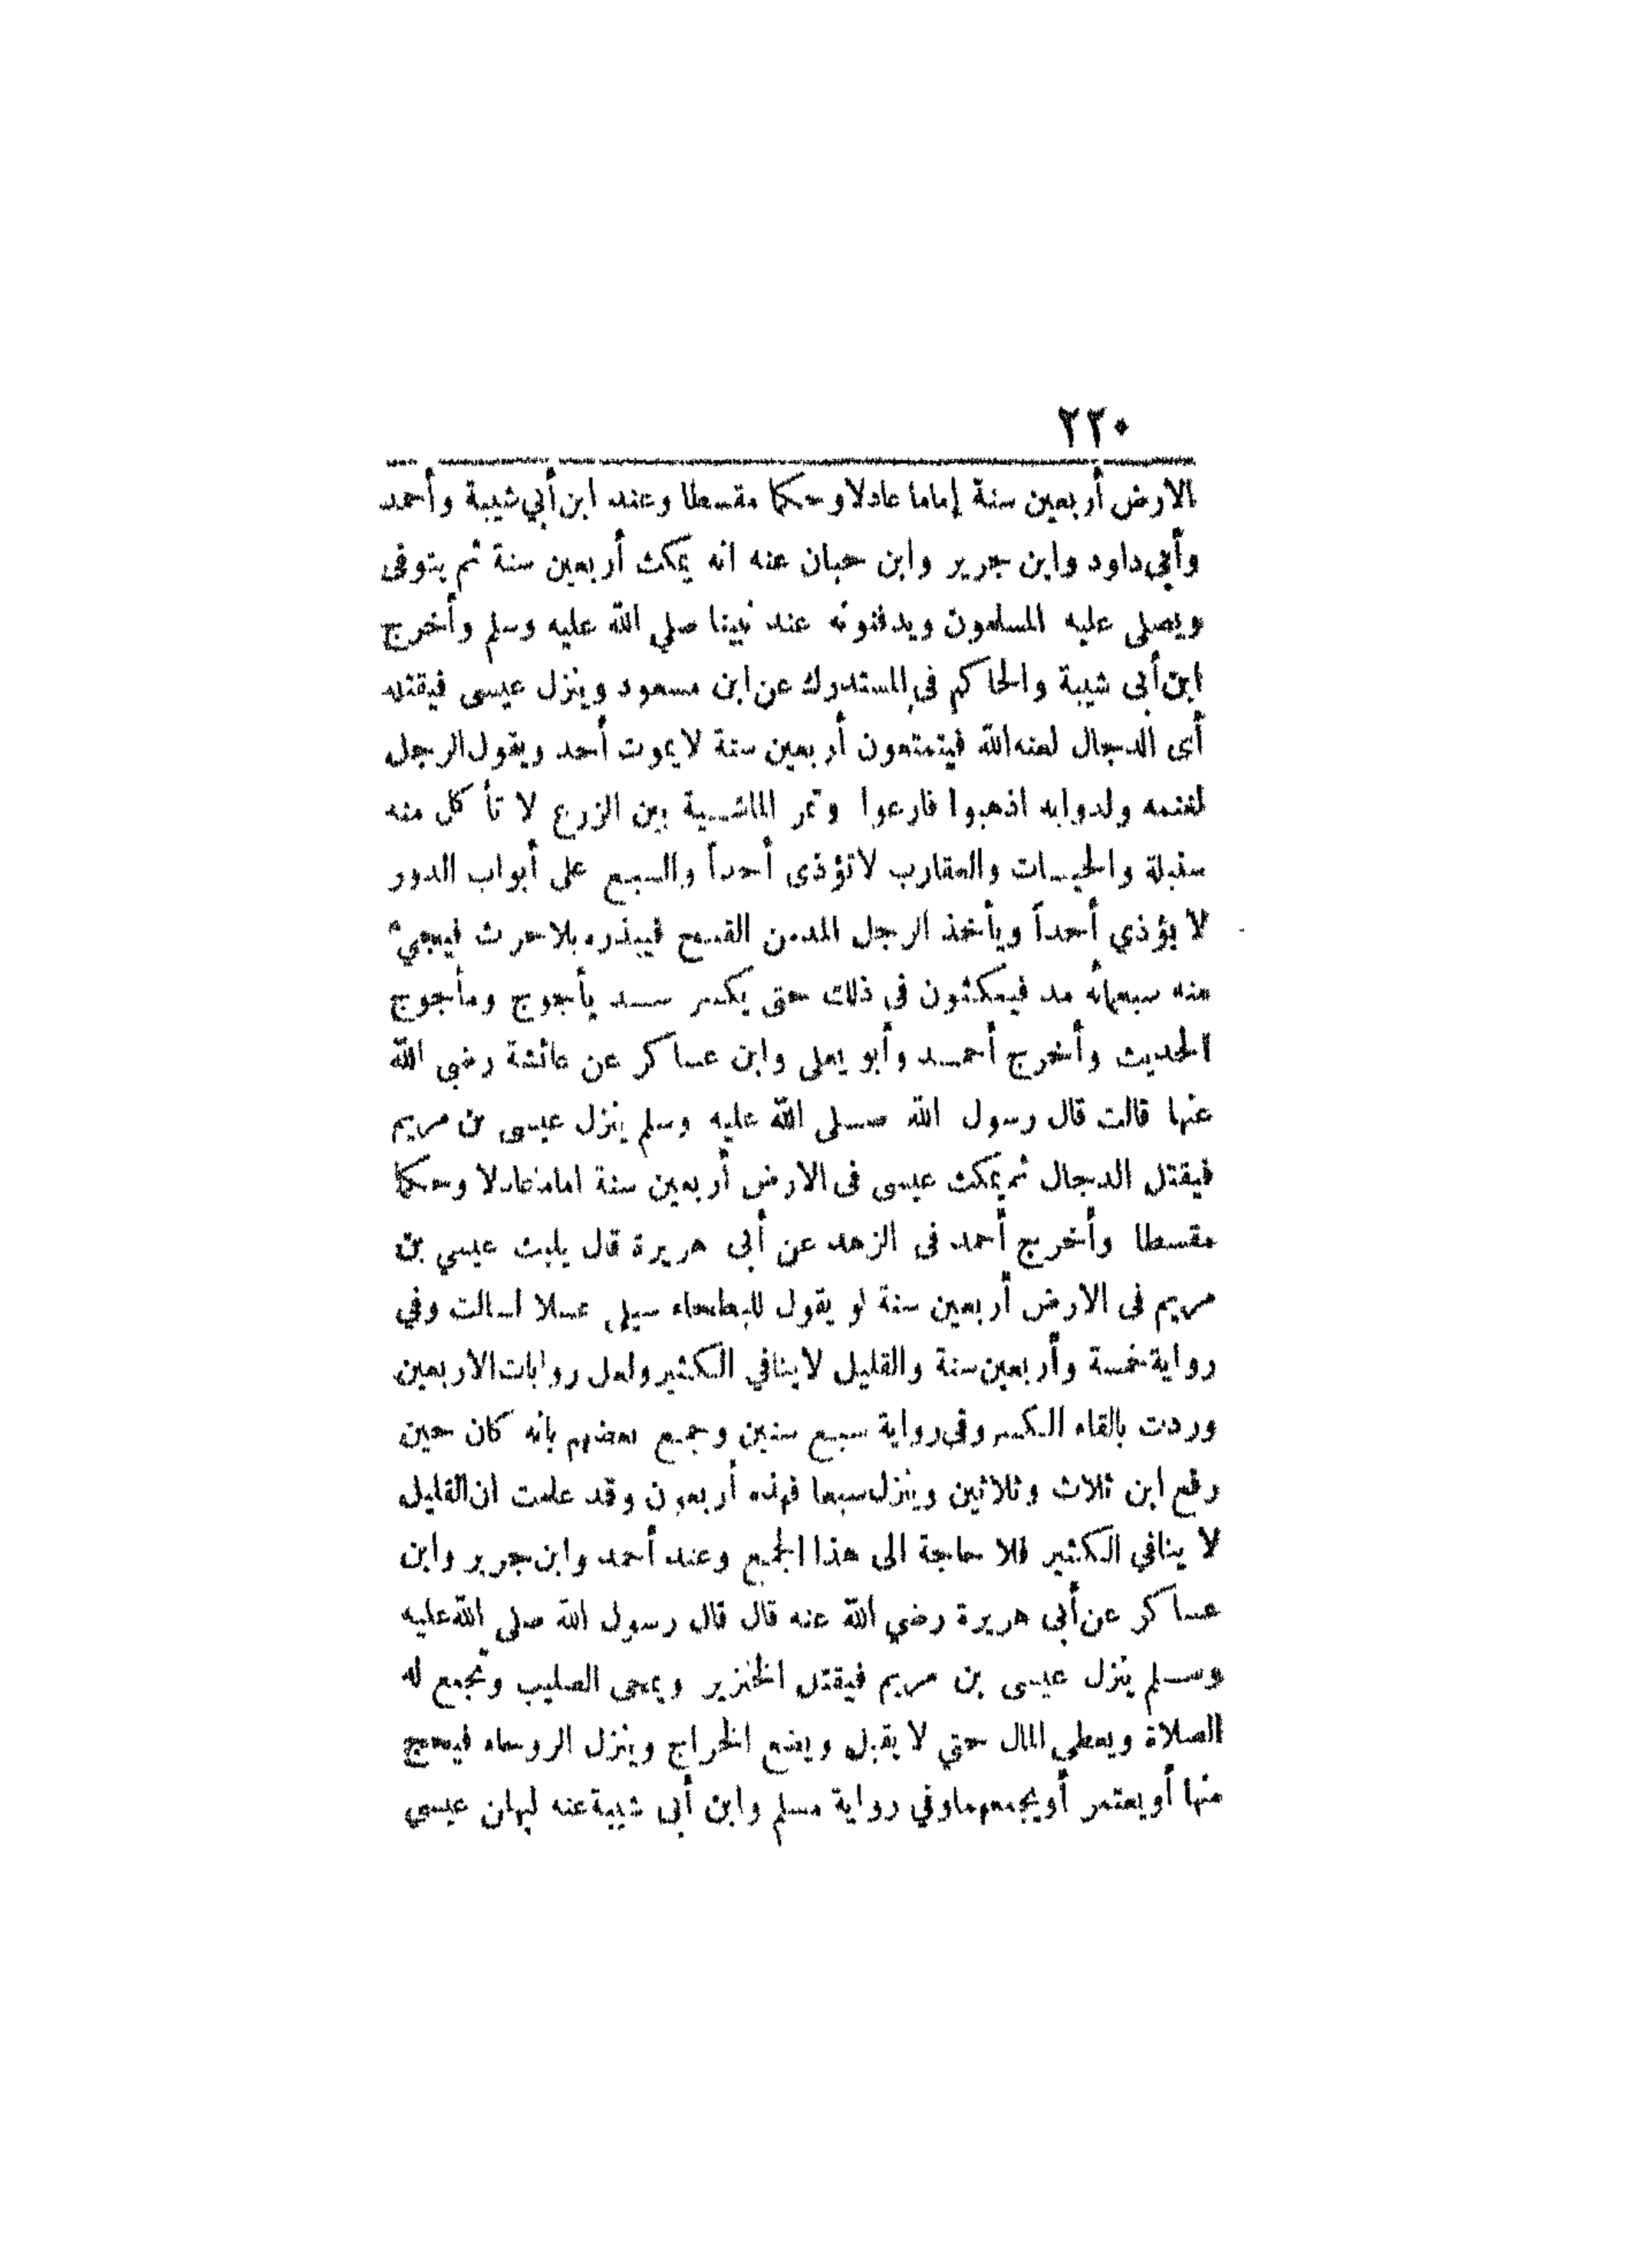 ٢٣٠
الارض أربعين سنة إماما عادلا وحكما مقسطا وعند ابن أبي شيبة وأحمد
وأبي داود وابن جرير وابن حبان عنه انه يمكث أربعين سنة ثم يتوفى
ويصلى عليه المسلمون ويدفنونه عند نبينا صلي الله عليه وسلم وأخرج
ابن أبى شيبة والحاكم في المستدرك عن ابن مسعود وينزل عيسى فيقتله
أى الدجال لعنه الله فيتمتعون أربعين سنة لا يموت أحد ويقول الرجل
لغنمه ولدوابه اذهبوا فارعوا وتمر الماشية بين الزرع لا تأكل منه
سنبلة والحيات والعقارب لا تؤذى أحداً والسبع على أبواب الدور
لا يؤذي أحداً ويأخذ الرجل المد من القمح فيبذره بلا حرث فيجيء
منه سبعمائة مد فيمكثون فى ذلك حتى يكسر سد يأجوج ومأجوج
الحديث وأخرج أحمد وأبو يعلى وابن عساكر عن عائشة رضي الله
عنها قالت قال رسول الله صلى الله عليه وسلم ينزل عيسى بن مريم
فيقتل الدجال ثم يمكث عيسى فى الارض أربعين سنة اماما عادلا وحكما
مقسطا وأخرج أحمد فى الزهد عن أبى هريرة قال يلبث عيسي بن
مريم فى الارض أربعين سنة لو يقول للبطحاء سيلى عسلا لسالت وفي
رواية خمسة وأربعين سنة والقليل لا ينافي الكثير ولعل روايات الاربعين
وردت بالقاء الكسر وفى رواية سبع سنين وجمع بعضهم بانه كان حين
رفع ابن ثلاث وثلاثين وينزل سبعا فهذه أربعون وقد علمت ان القليل
لا ينافي الكثير فلا حاجة الى هذا الجمع وعند أحمد وابن جرير وابن
عساكر عن أبى هريرة رضي الله عنه قال قال رسول الله صلى الله عليه
وسلم ينزل عيسى بن مريم فيقتل الخنزير ويمحى الصليب وتجمع له
الصلاة ويعطي المال حتي لا يقبل ويضع الخراج وينزل الروحاء فيحج
منها أو يعتمر أو يجمعهما وفي رواية مسلم وابن أبى شيبة عنه ليهلن عيسى